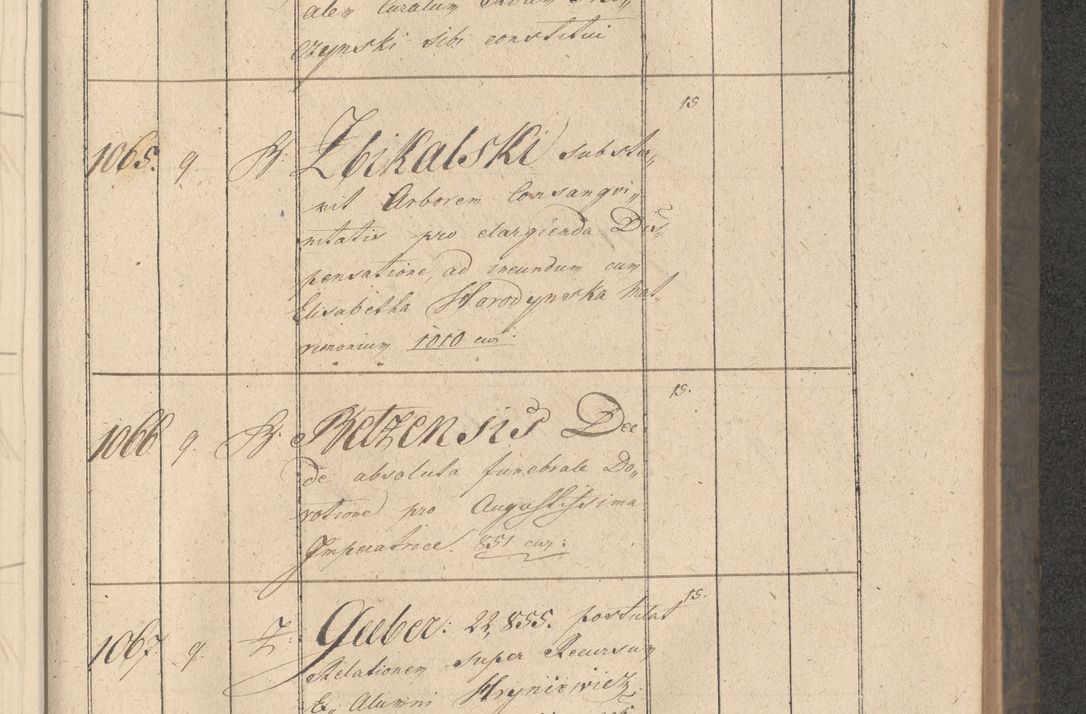 alem Curatum
czynski sibi constitui
15
1065. 9. R: Zbikalski substa„
vit Arborem Consangvi„
nitatis pro elargienda Dis„
pensatione, ad ineundum cum
Elisabetha Horodynska Mat„
rimonium 1010 cur:
15.
1066 9. R: Retzensis Dec:
de absoluta funebrale De„
votione pro Augustissima
Imperatrice. 851 cur:
15.
1067. 9. Z: Guber: 22,855. postulat
Relationem super Recursum
Alumni Hryniewicz